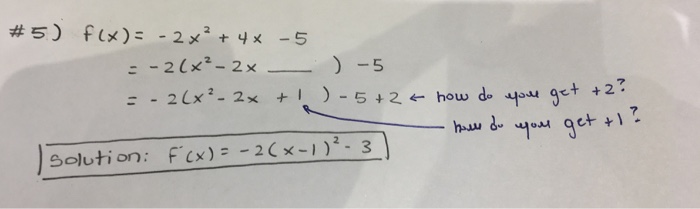 #5) f(x) = -2x² + 4x - 5
= -2(x² - 2x ____ ) - 5
= -2(x² - 2x + 1 ) - 5 + 2 ← how do you get +2?
how do you get +1?
Solution: f(x) = -2(x-1)² - 3